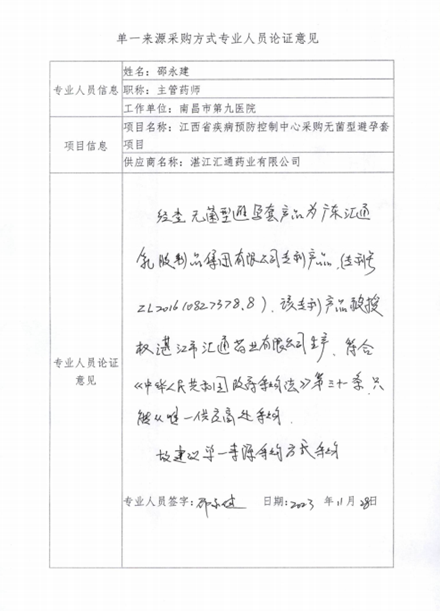 单一来源采购方式专业人员论证意见
专业人员信息
姓名：邵永建
职称：主管药师
工作单位：南昌市第九医院
项目信息
项目名称：江西省疾病预防控制中心采购无菌型避孕套
项目
供应商名称：湛江汇通药业有限公司
专业人员论证
意见
经查无菌型避孕套产品为广东汇通
乳胶制品集团有限公司专利产品（专利号
ZL201610827378.8），该专利产品被授
权湛江市汇通药业有限公司生产，符合
《中华人民共和国政府采购法》第三十一条，只
能从唯一供应商处采购.
故建议单一来源采购方式采购
专业人员签字：邵永建 日期：2023 年 11 月 28日